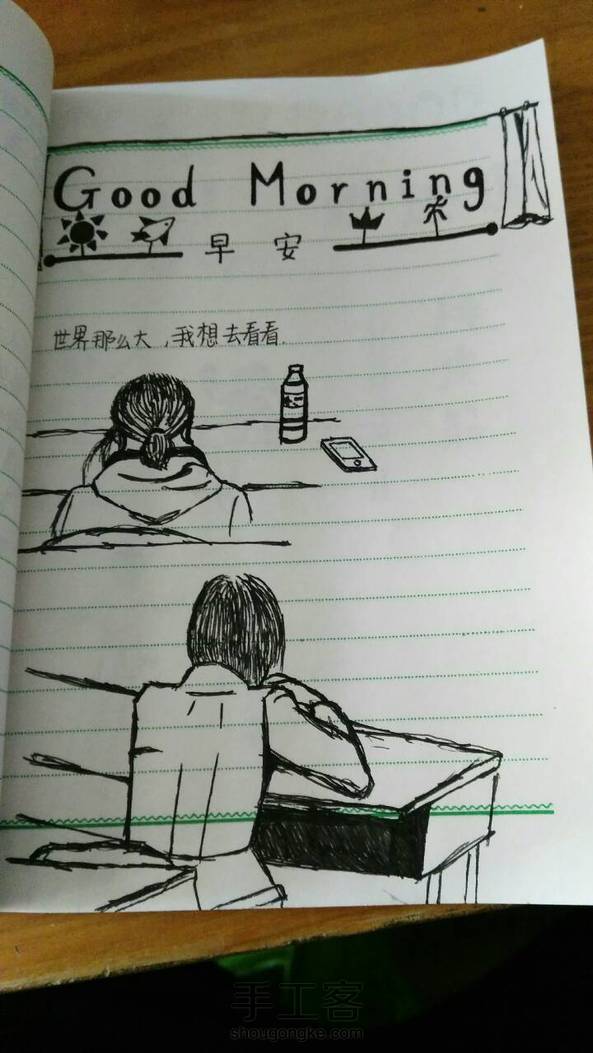 Good Morning
早 安
世界那么大,我想去看看.
手工客
shougongke.com